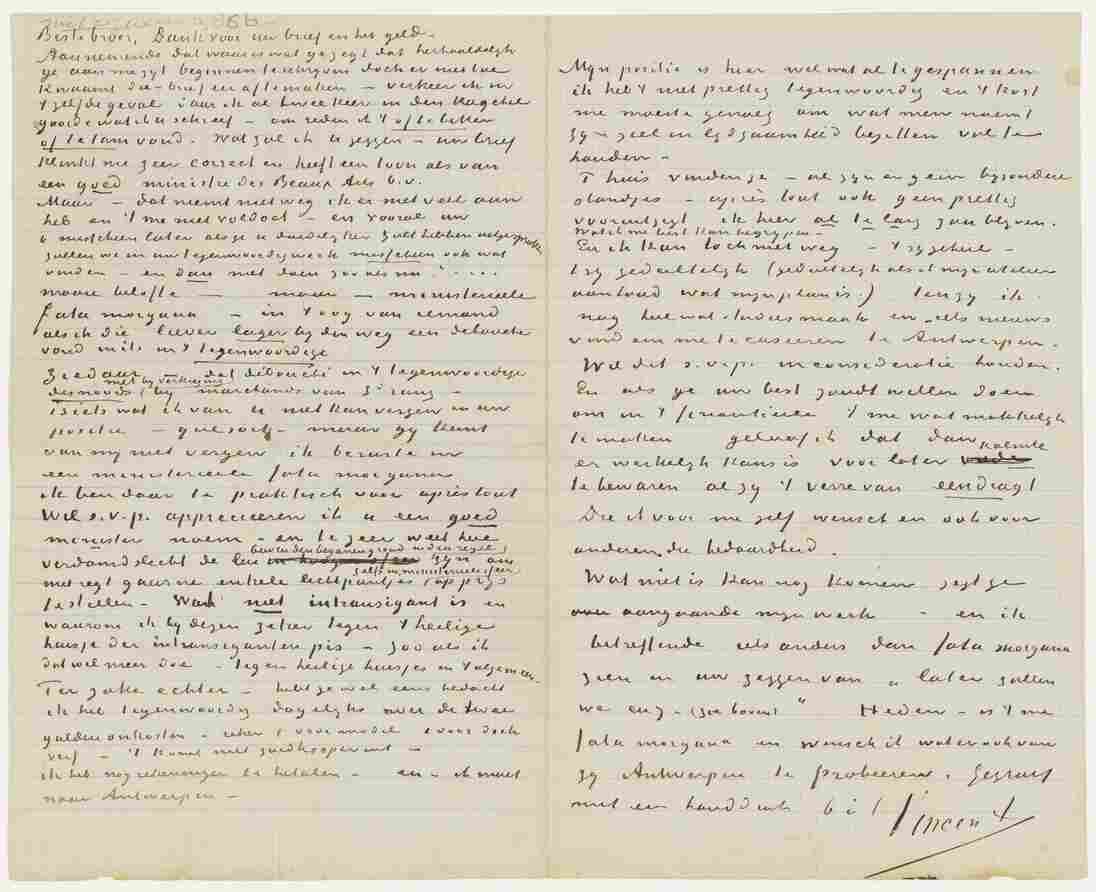 Beste broer, Dank voor uw brief en het geld.
Aannemende dat waar is wat ge zegt dat herhaaldelijk
ge aan me zijt beginnen te schrijven doch er niet toe
kwaamt die brief af te maken – verkeer ik in
't zelfde geval daar ik al twee keer in den kagchel
gooide wat ik u schreef – om reden ik 't of te bitter
of te tam vond. Wat zal ik u zeggen – uw brief
klinkt me zeer correct en heeft een toon als van
een goed ministre des Beaux Arts b.v.
Maar – dat neemt niet weg ik er niet veel aan
heb en 't me niet voldoet – en vooral uw
b misschien later als ge u duidelijker zult hebben uitgesproken
zullen we in uw tegenwoordig werk misschien ook wat
vinden – en dan niet doen zoo als nu" . . . . .
mooie belofte — maar – ministerieele
fata morgana – in 't oog van iemand
als ik die liever lager bij den weg een debouché
vond mits in 't tegenwoordige
Ziedaar dat débouché in 't tegenwoordige
desnoods (met bij verkiezing) bij marchands van 3e rang –
is iets wat ik van u niet kan vergen in uw
positie – quel soit – maar gij kunt
van mij niet vergen ik beruste in
een ministerieele fata morgana
ik ben daar te praktisch voor après tout
Wil s.v.p. apprecieeren ik u een goed
minister noem – en te zeer weet hoe
verdomd slecht de lui bewesten den beganen grond in den regel zijn om
niet regt gaarne enkele lichtpuntjes zelfs in ministerieele sfeer op prijs
te stellen – Wat niet intransigeant is en
waarom ik bij dezen zeker tegen 't heilige
huisje der intransigeanten pis – zoo als ik
dat wel meer doe – tegen heilige huisjes in 't algemeen.
Ter zake echter – hebt ge wel eens bedacht
ik heb tegenwoordig dagelijks meer dan twee
gulden onkosten – reken 1 voor model 1 voor doek
verf – 't komt niet goedkooper uit –
ik heb nog rekeningen te betalen – en – ik moet
naar Antwerpen –
Mijn positie is hier wel wat al te gespannen
ik heb 't niet prettig tegenwoordig en 't kost
me moeite genoeg om wat men noemt
zijn ziel in lijdzaamheid bezitten vol te
houden –
T huis vinden ze – al zijn er geen bijzondere
standjes – après tout ook geen prettig
vooruitzigt ik hier al te lang zou blijven.
Wat ik me best kan begrijpen –
En ik kan toch niet weg – 't zij geheel –
't zij gedeeltelijk (gedeeltelijk als 't mijn atelier
aanhoud wat mijn plan is.) tenzij ik
nog heel wat studies maak en iets nieuws
vind om me te caseeren te Antwerpen.
Wil dit s.v.p. in consideratie houden.
En als ge uw best zoudt willen doen
om in 't financieele 't me wat makkelijk
te maken geloof ik dat dan
er werkelijk kans is voor later kalmte
te bewaren al zij 't verre van eendragt
Die ik voor me zelf wensch en ook voor
anderen, die bedaardheid.
Wat niet is kan nog komen zegt ge
aangaande mijn werk – en ik
betreffende iets anders dan fata morgana
zien in uw zeggen van „later zullen
we enz – (zie boven)" Heden – is 't me
fata morgana en wensch ik wat er ook van
zij Antwerpen te probeeren. Gegroet
met een handdruk b à t Vincent